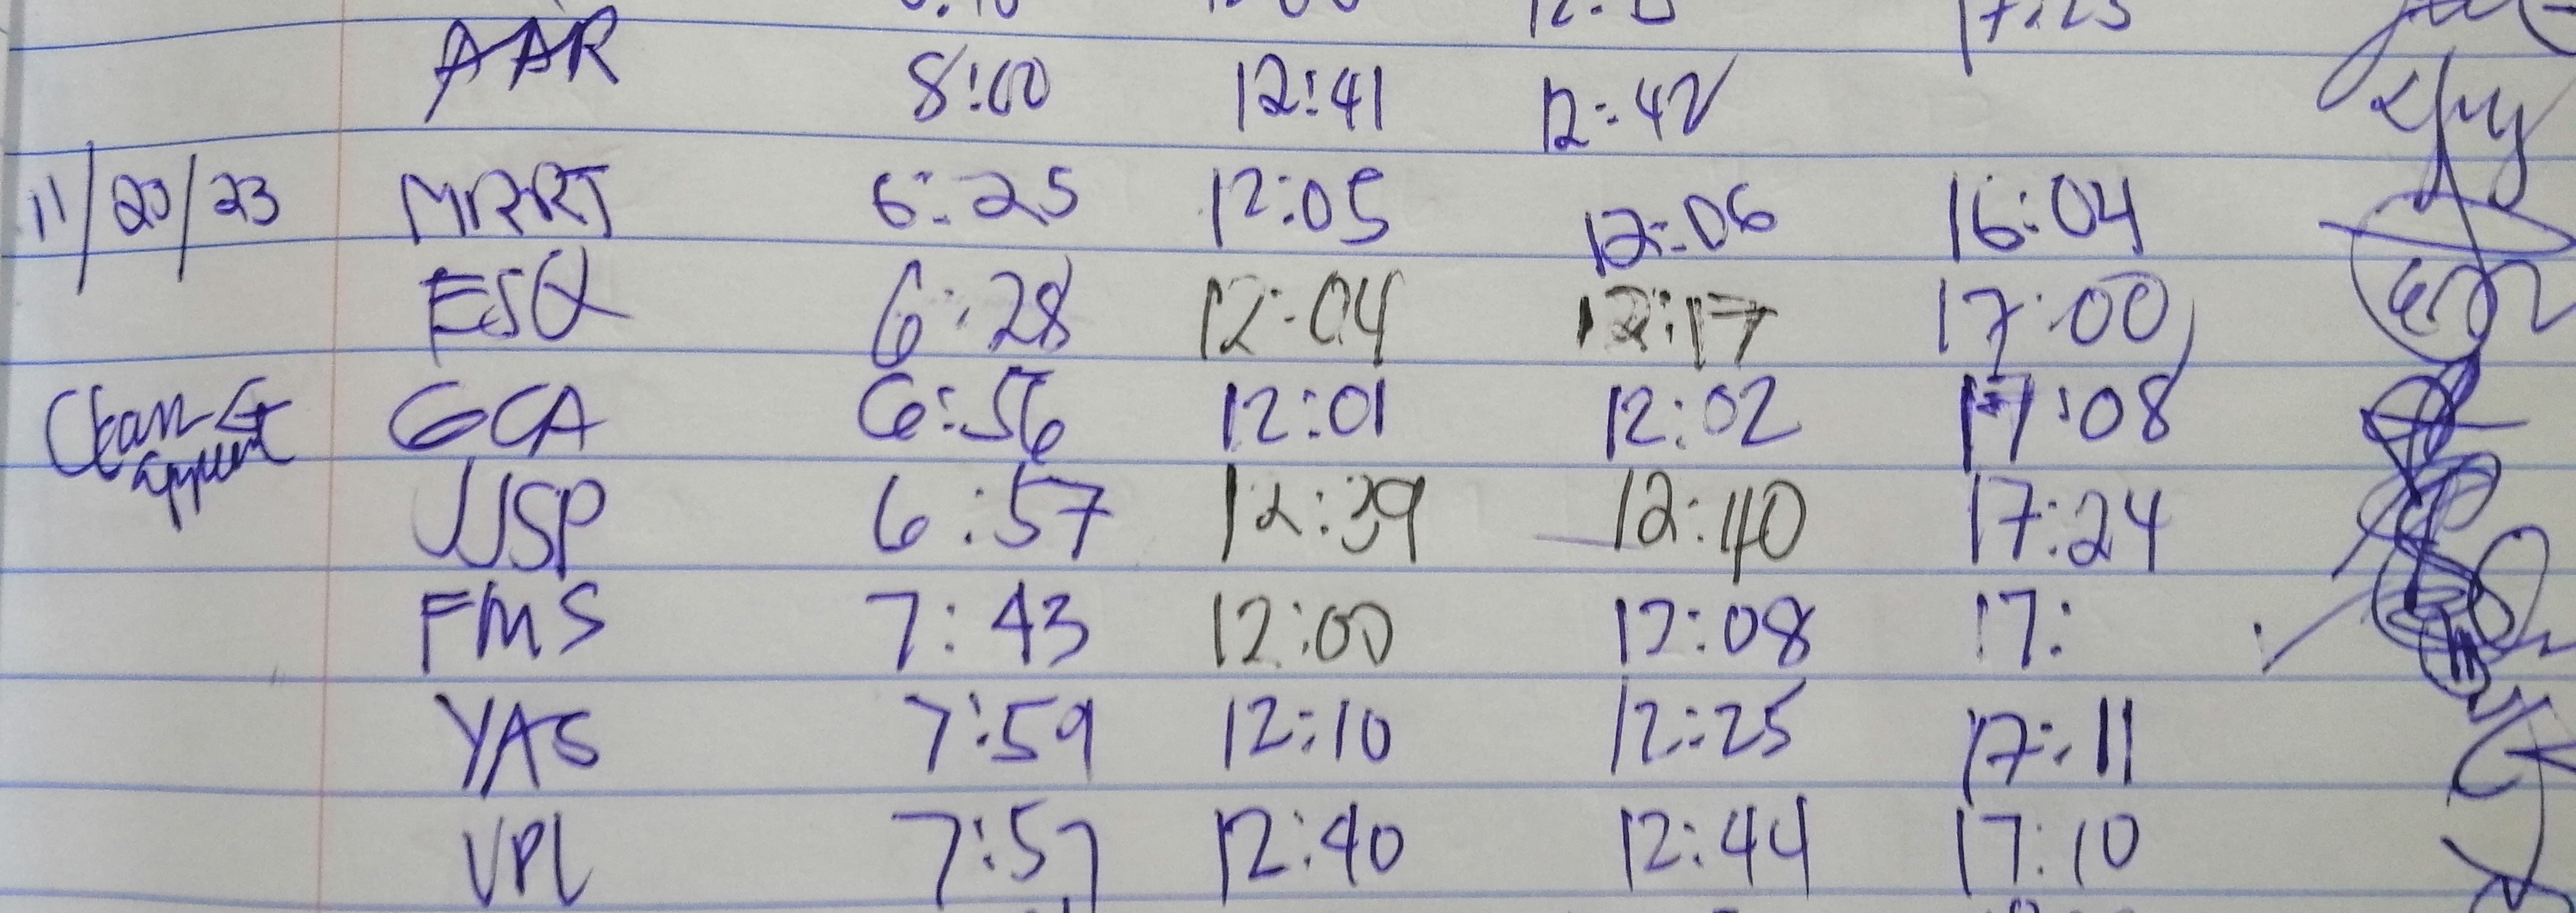 17:23
AAR 8:00 12:41 12:42
11/20/23 MRRT 6:25 12:05 12:06 16:04
ESQ 6:28 12:04 12:17 17:00
GCA 6:56 12:01 12:02 17:08
JJSP 6:57 12:39 12:40 17:24
FMS 7:43 12:00 12:08 17:
YAS 7:59 12:10 12:25 17:11
VPL 7:57 12:40 12:44 17:10